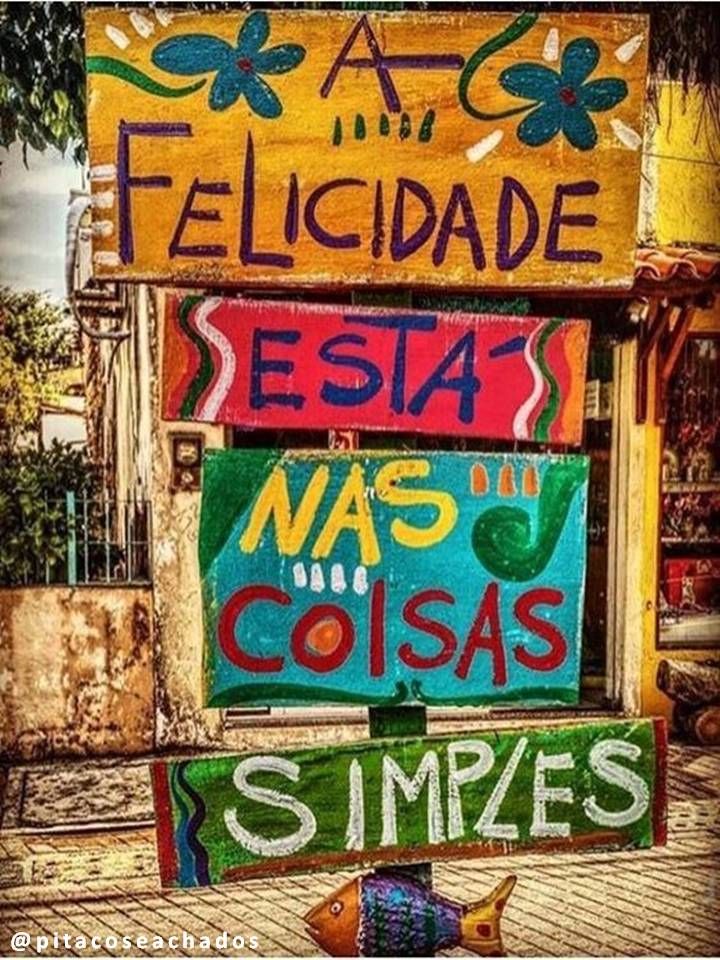 A
FELICIDADE
ESTÁ
NAS
COISAS
SIMPLES
@pitacoseachados